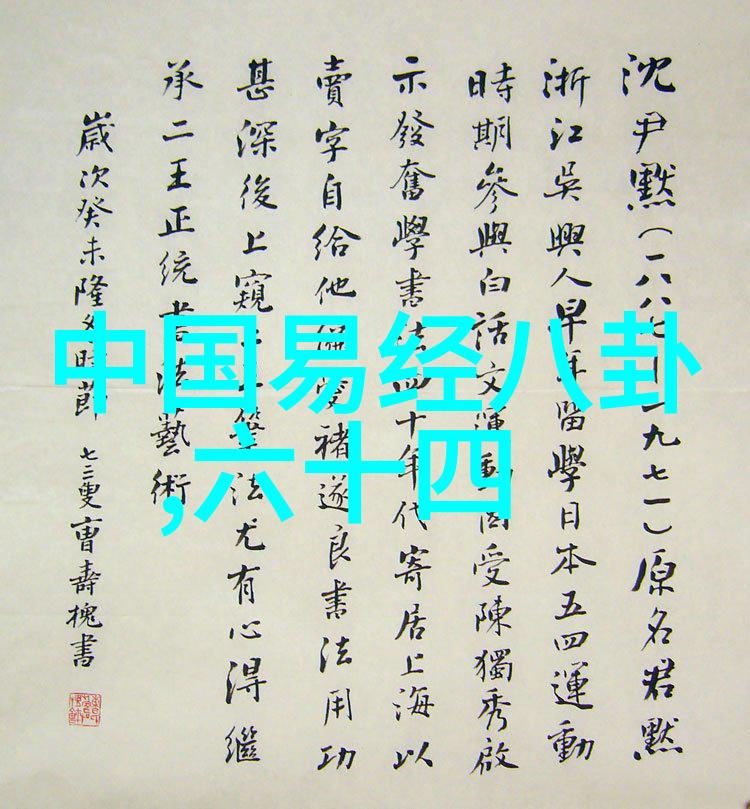 沈尹默(一八八七—一九七一)原名君默
浙江吳興人早年留學日本五四運動
時期參與白話文運動因受陳獨秀啟
示發奮學書法四十年代寄居上海以
賣字自給他偏愛褚遂良書法用功
甚深後上窺二王筆法尤有心得繼
承二王正統書法藝術
歲次癸未隆冬時節 七三叟曹壽槐書
中国易经八卦
,六十四